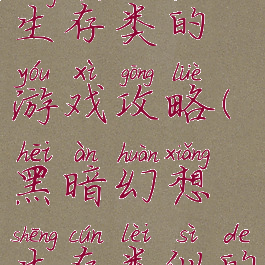 生存类的
yóu xì gōng lüè
游戏攻略(
hēi àn huàn xiǎng
黑暗幻想
shēng cún lèi sì de
生存类似的